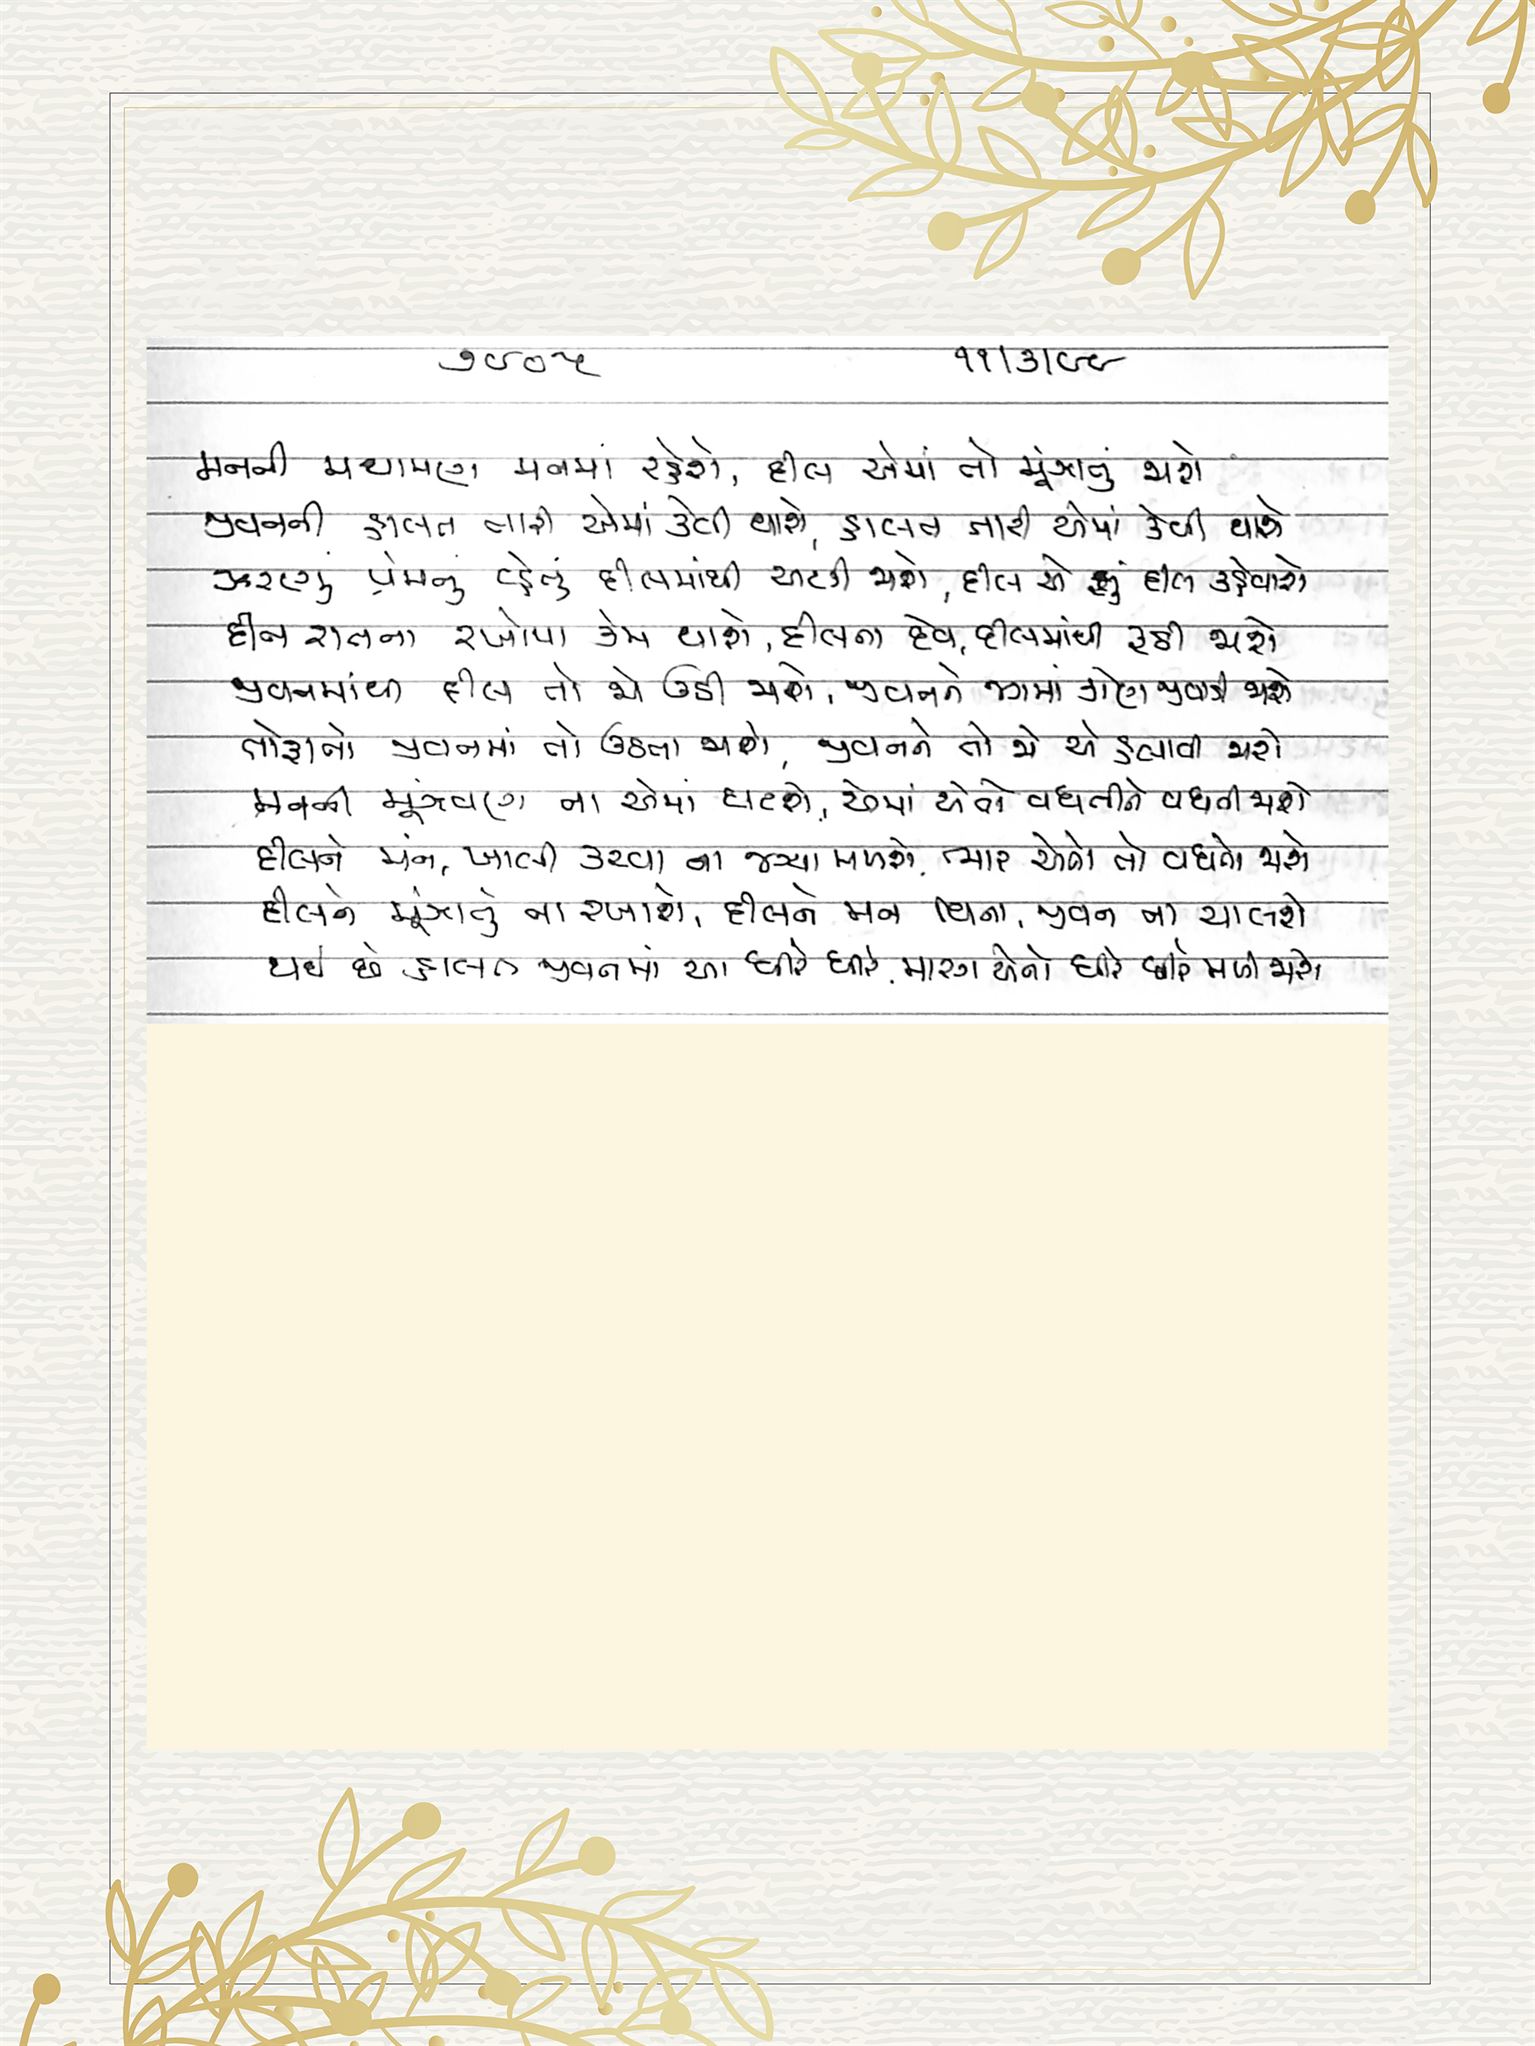 ૭૯૦૫ ૧૧/૩/૯૯
મનની મથામણ મનમાં રહેશે, દીલ એમાં તો મૂંઝાતું જાશે
જીવનની હાલત તારી એમાં કેવી થાશે, હાલત તારી એમાં કેવી થાશે
ઝરણું પ્રેમનું વહેતું દીલમાંથી અટકી જાશે, દીલ એ શું દીલ કહેવાશે
દીન રાતના રખોપા કેમ થાશે, દીલના દેવ, દીલમાંથી રૂઠી જાશે
જીવનમાંથી દીલ તો જો ઉઠી જાશે, જીવનને જગમાં કોણ જીવાડી જાશે
તોફાનો જીવનમાં તો ઉઠતા જાશે, જીવનને તો જો એ હલાવી જાશે
મનની મૂંઝવણ ના એમાં ઘટશે, એમાં એતો વધતીને વધતી જાશે
દીલને મન, ખાલી કરવા ના જગ્યા મળશે, ભાર એનો તો વધતો જાશે
દીલને મૂંઝાતું ના રખાશે, દીલને મન વિના, જીવન ના ચાલશે
થઈ છે હાલત જીવનમાં આ ધીરે ધીરે, મારગ એનો ધીરે ધીરે મળી જાશે